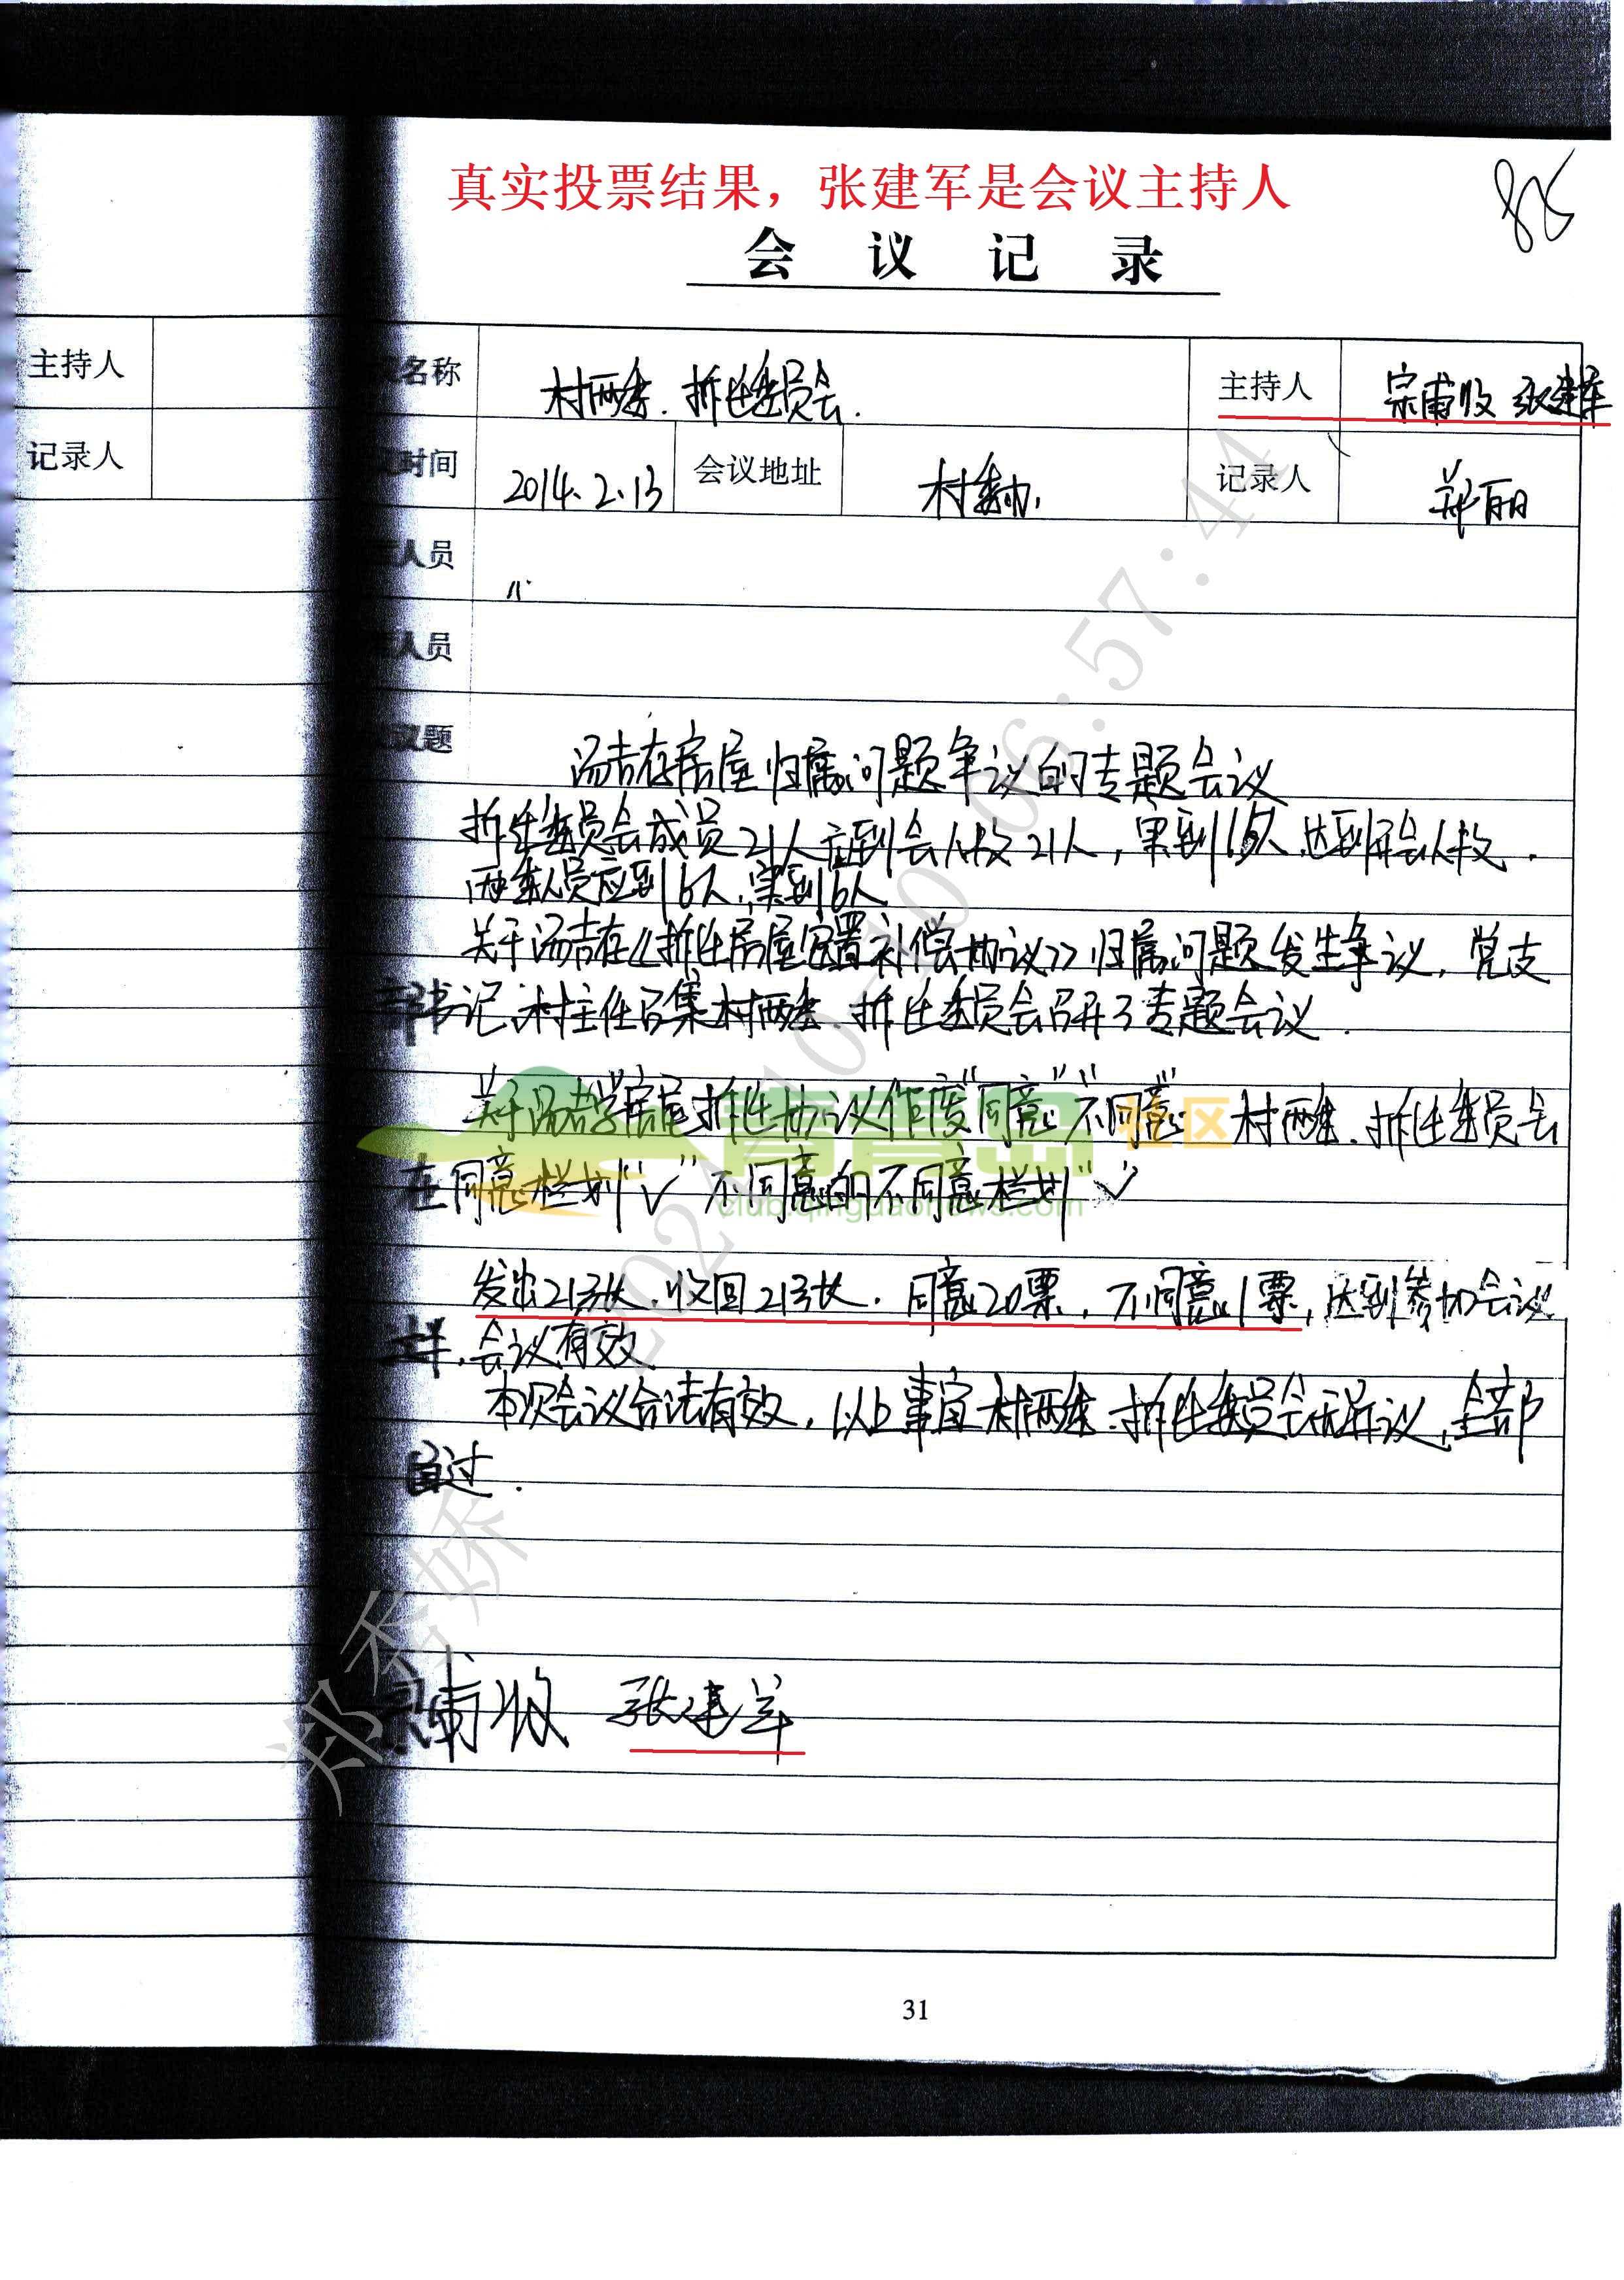 真实投票结果，张建军是会议主持人
85
会议记录
主持人 名称 村两委.拆迁委员会. 主持人 宗甫收 张建军
记录人 时间 2014.2.13 会议地址 村委办 记录人 郑丽
人员 〃
人员
议题
汤吉存房屋归属问题争议的专题会议
拆迁委员会成员21人应到会人数21人，实到15人.达到开会人数.
两委人员应到6人，实到6人
关于汤吉存《拆迁房屋安置补偿协议》归属问题发生争议，党支
部书记、村主任召集村两委.拆迁委员会召开了专题会议.
关于汤吉存房屋拆迁协议作废"同意""不同意" 村两委.拆迁委员会
在同意栏划"√" 不同意的不同意栏划"√"
发出21张.收回21张.同意20票，不同意1票，达到参加会议
半，会议有效
本次会议合法有效，以上事宜村两委.拆迁委员会无异议，全部
通过.
宗甫收 张建军
31
青青岛 社区
club.qingdaonews.com
郑秀娇 2024-10-10 06:57:44